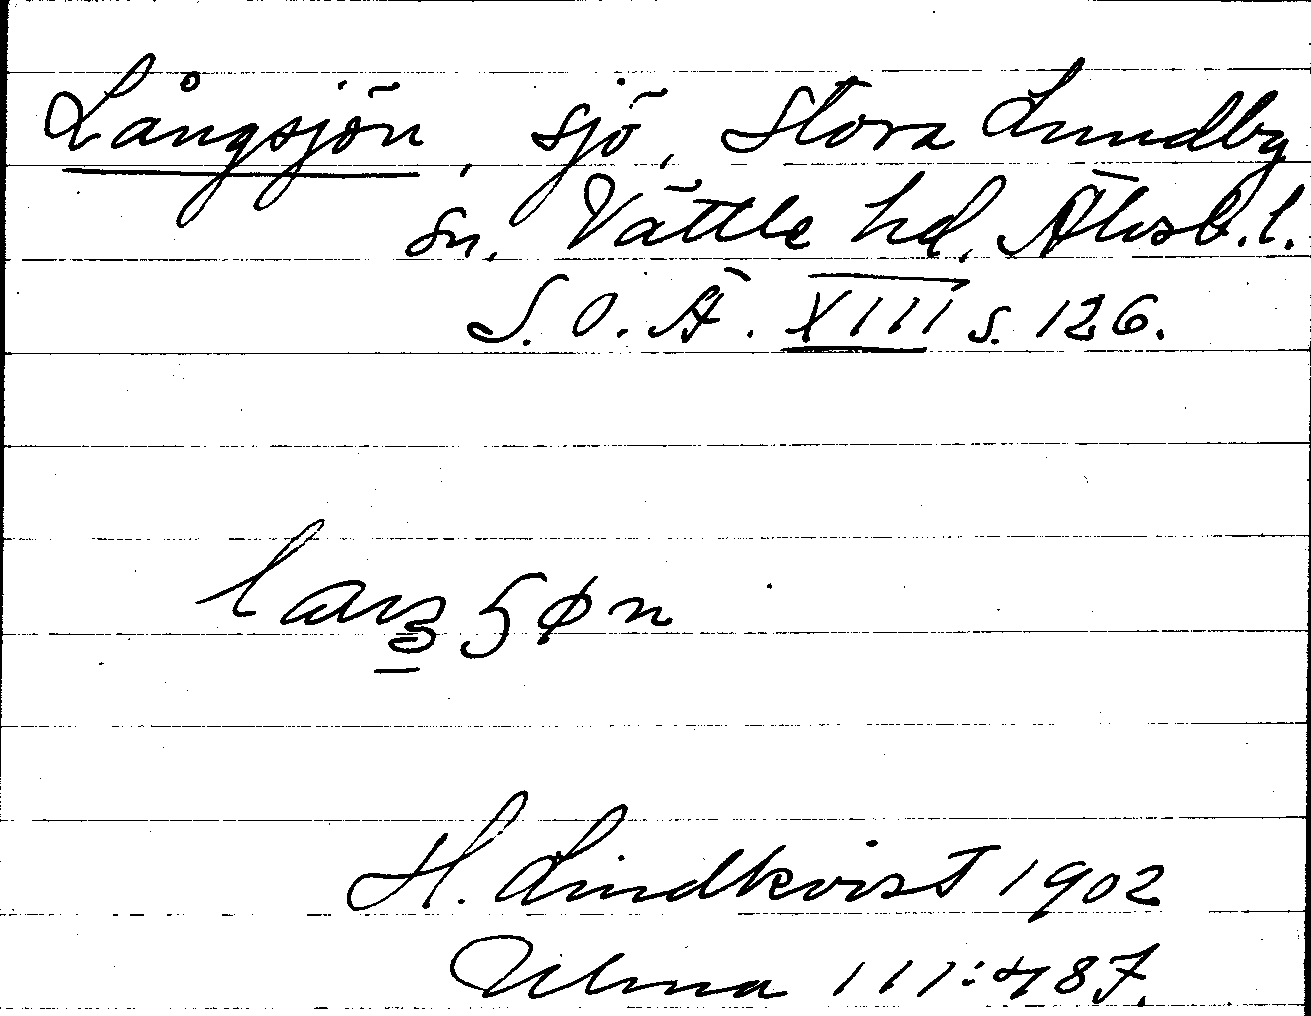 Långsjön, sjö, Stora Lundby
sn, Vättle hd, Älvsb. l.
S. O. Ä. XIII s. 126.
H. Lindkvist 1902
Ulma 111:487.